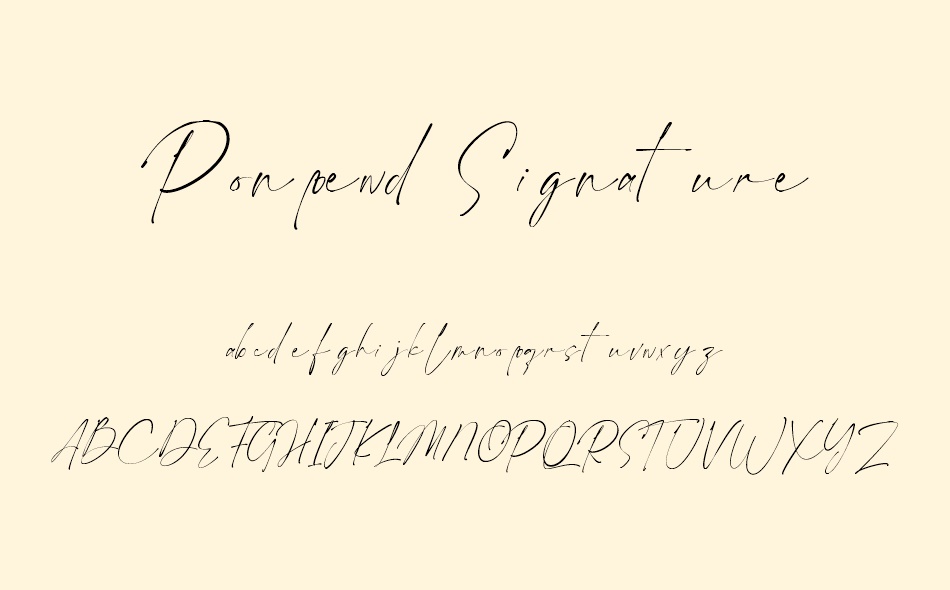 Ponpewd Signature
abcdefghijklmnopqrstuvwxyz
ABCDEFGHIJKLMNOPQRSTUVWXYZ